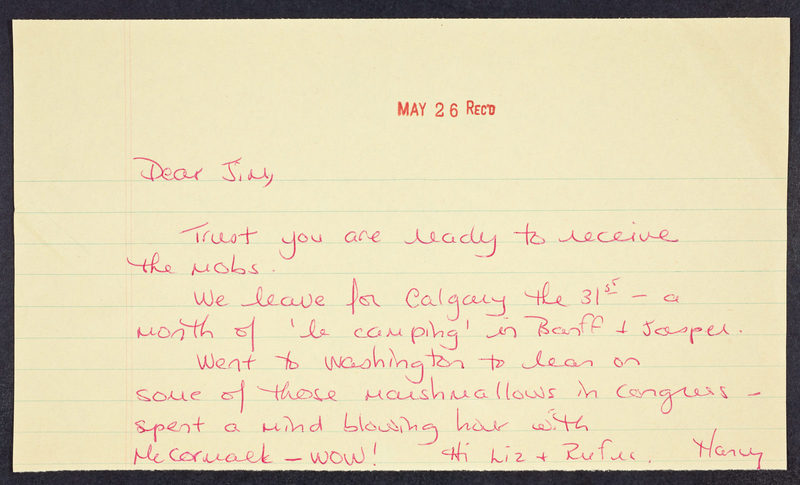 MAY 26 REC'D
Dear Jim,
Trust you are ready to receive
the mobs.
We leave for Calgary the 31st – a
month of 'le camping' in Banff + Jasper.
Went to Washington to lean on
some of those marshmallows in congress –
spent a mind blowing hour with
McCormack – WOW! Hi Liz + Rufus. Harry